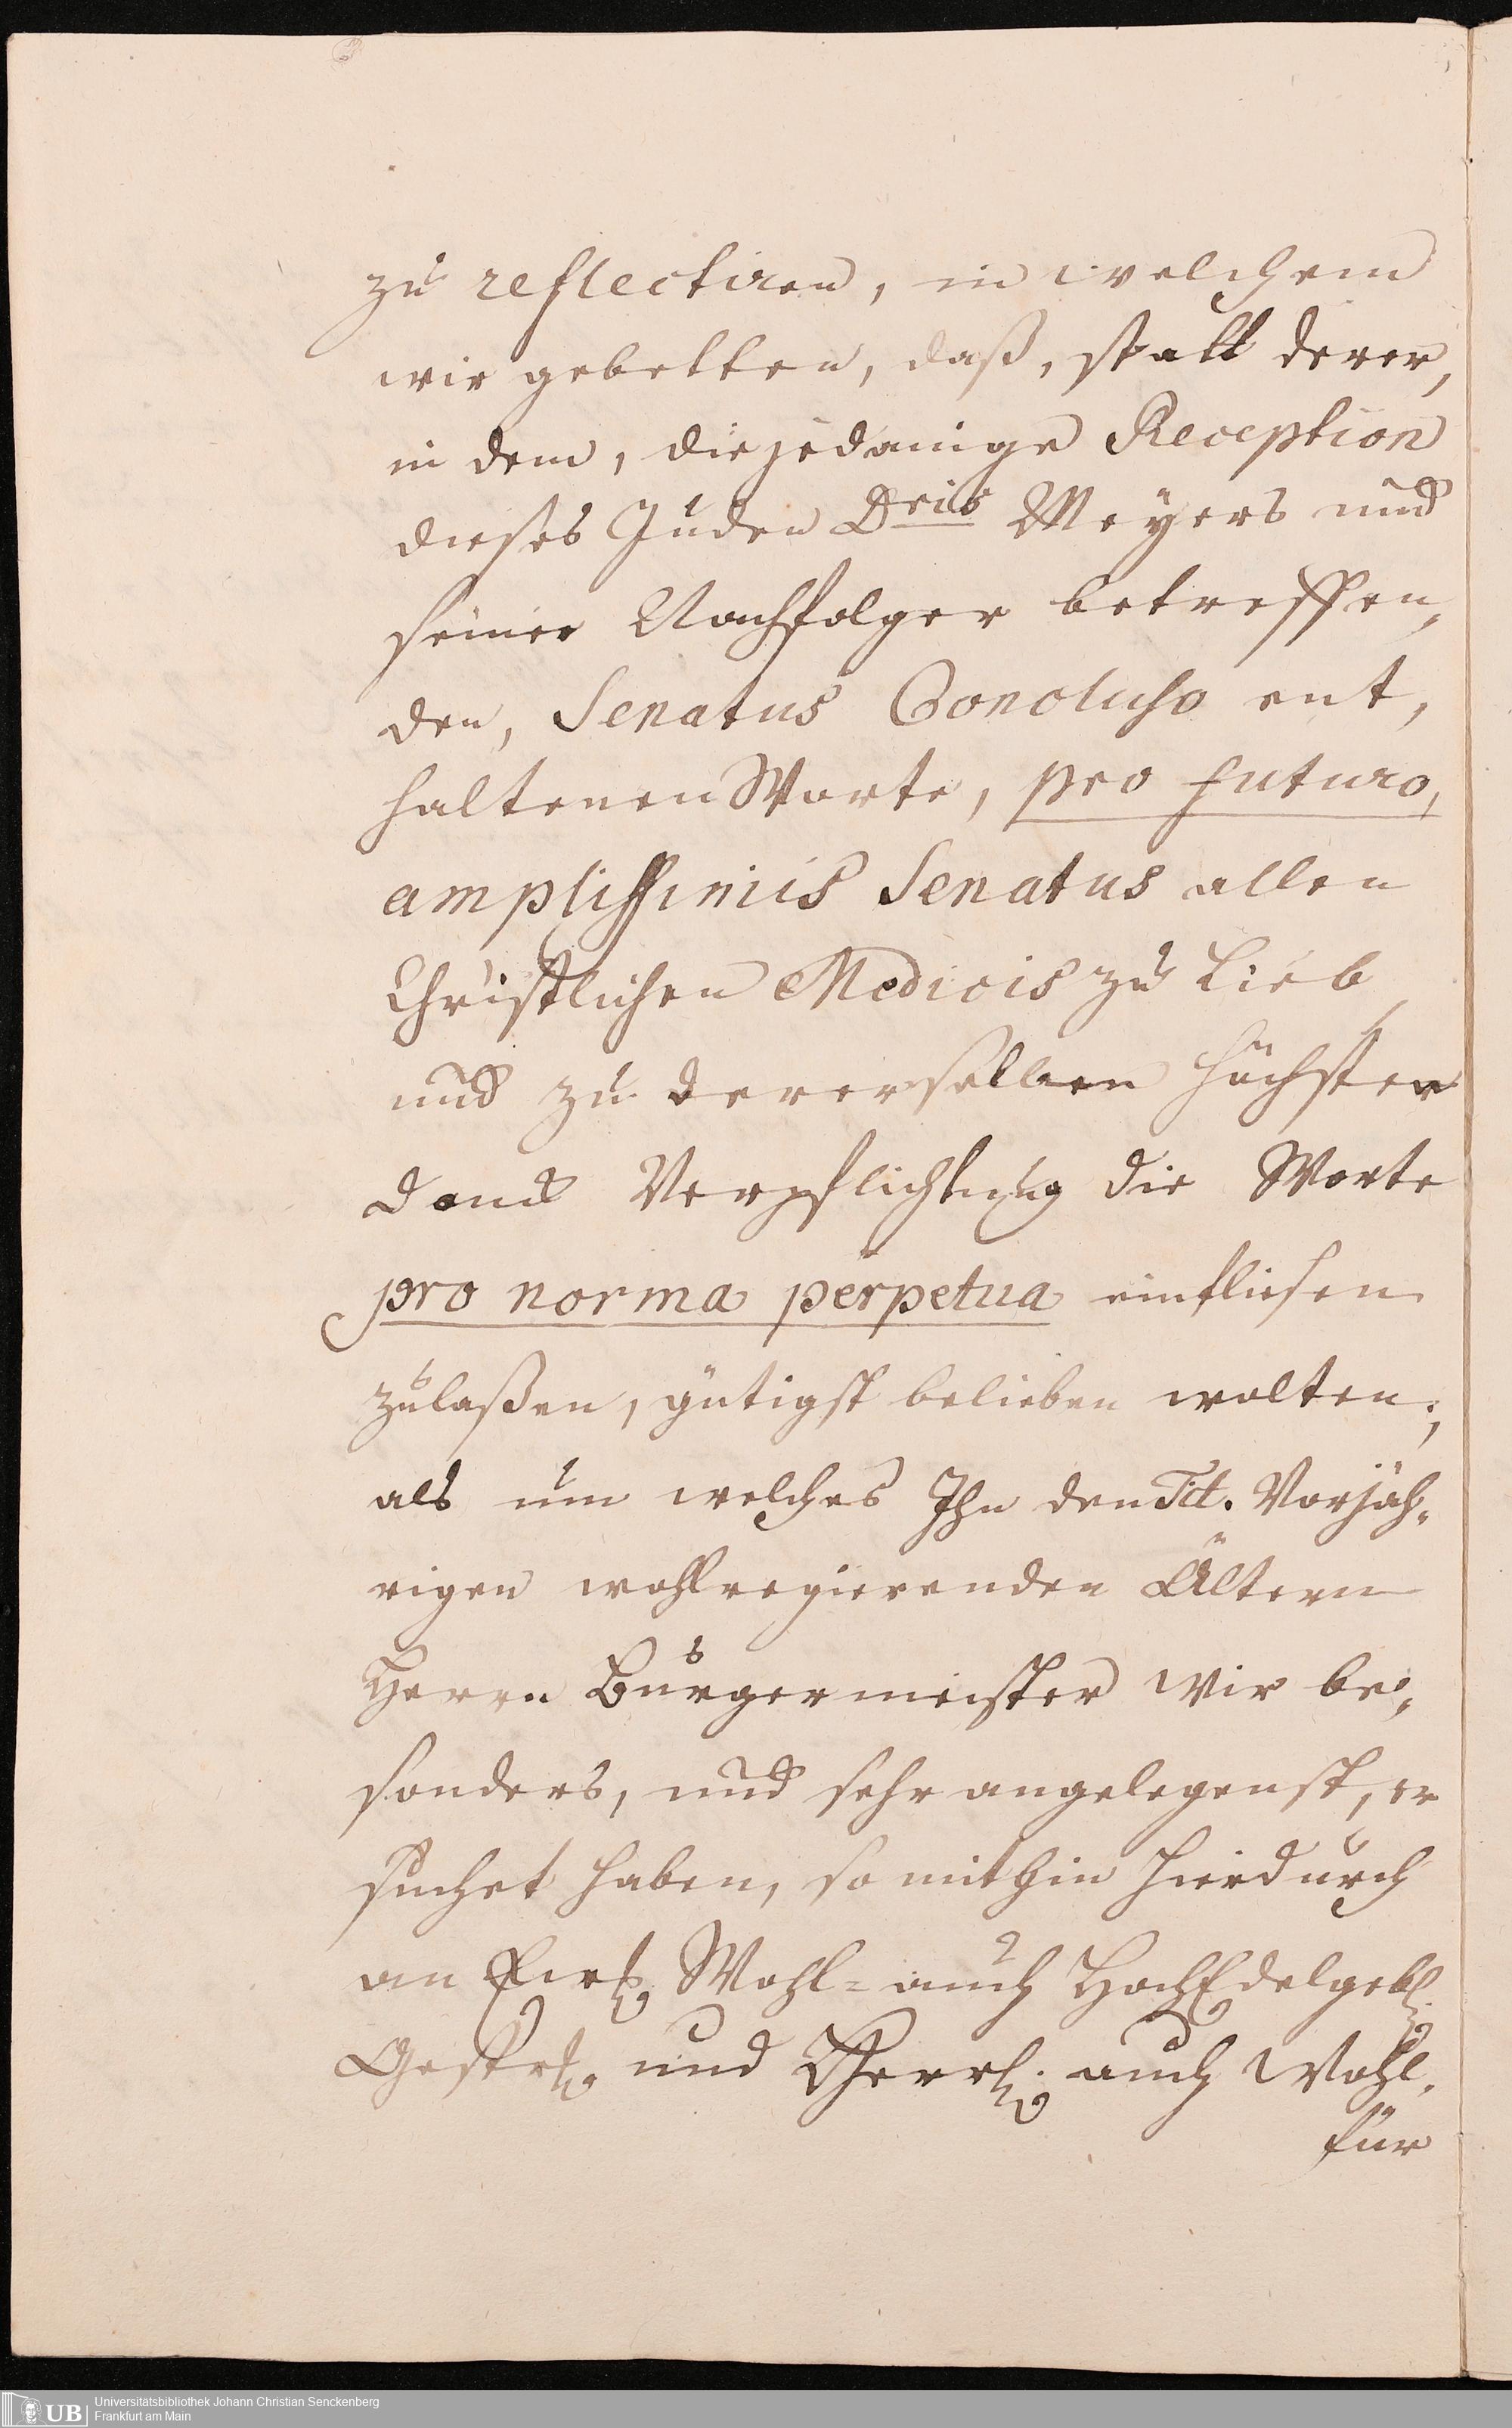 zu reflectiren, in welchem
wir gebetten, daß, statt derer,
in dem, die jedanige Reception
dieses Juden Dris Meyers und
seiner Nachfolger betreffen„
den, Senatus Concluso ent„
haltenen Worte, pro futuro,
amplissimis Senatus allen
Christlichen Medicis zu Lieb
und zu dererselben höchsten
danck Verpflichtung die Worte
pro norma perpetua einfliesen
zulaßen, gütigst belieben wolten;
als um welches Ihn den Tit. Vorjäh„
rigen wohlregierenden Ältern
Herrn Burgermeister wir be„
sonders, und sehr angelegenst, er
suchet haben, so mithin hierdurch
an Wohl- auch HochEdelgebl.
Gestrl. und Herrl. auch Wohl„
für
Universitätsbibliothek Johann Christian Senckenberg
UB
Frankfurt am Main